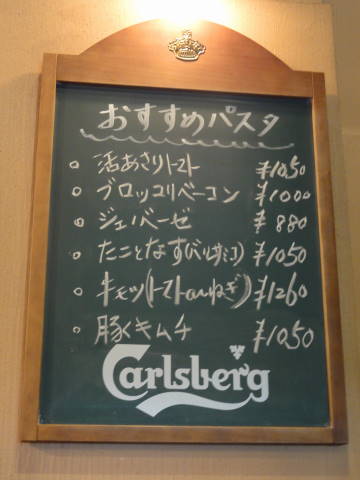 おすすめパスタ
活あさりトマト ¥1050
ブロッコリベーコン ¥1000
ジェノベーゼ ¥880
たことなす ¥1050
牛モツ(トマトorねぎ) ¥1260
豚くキムチ ¥1050
Carlsberg